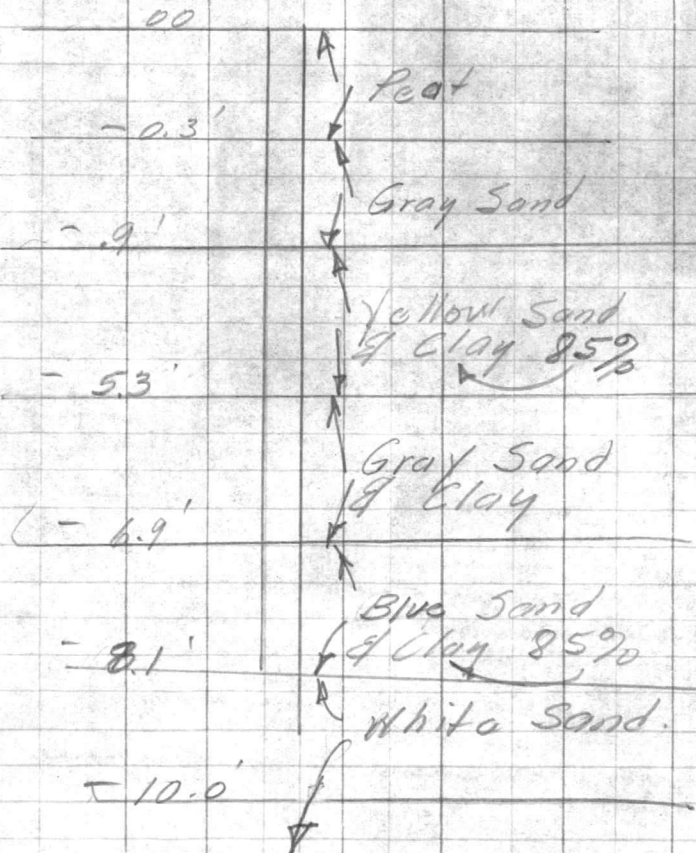 00
Peat
- 0.3'
Gray Sand
- .9'
Yellow Sand
& Clay 85%
- 5.3'
Gray Sand
& Clay
- 6.9'
Blue Sand
& Clay 85%
- 8.1'
White Sand.
- 10.0'